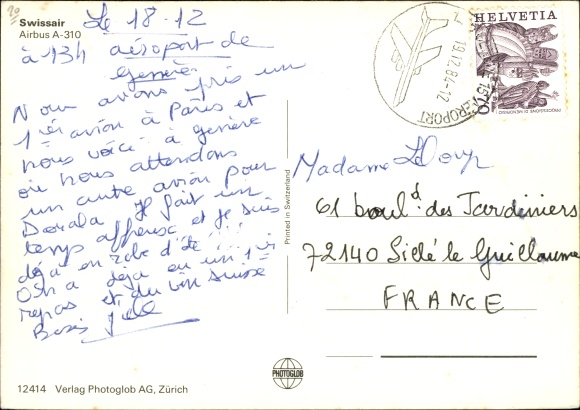 20
Swissair
Airbus A-310
Le 18-12
à 13h aéroport de
Genève.
Nous avons pris un
1er avion à Paris et
nous voici à genève
où nous attendons
un autre avion pour
Douala. Il fait un
temps affreux et je suis
déjà en robe d'été !!!
On a déjà eu un 1er
repas et du vin suisse
Bises
12414 Verlag Photoglob AG, Zürich
Printed in Switzerland
PHOTOGLOB
AEROPORT
19.12.84-12
HELVETIA
70
PROCESSIONE DI MENDRISIO
Madame
61 boul^d des Jardiniers
72140 Sillé le Guillaume
FRANCE